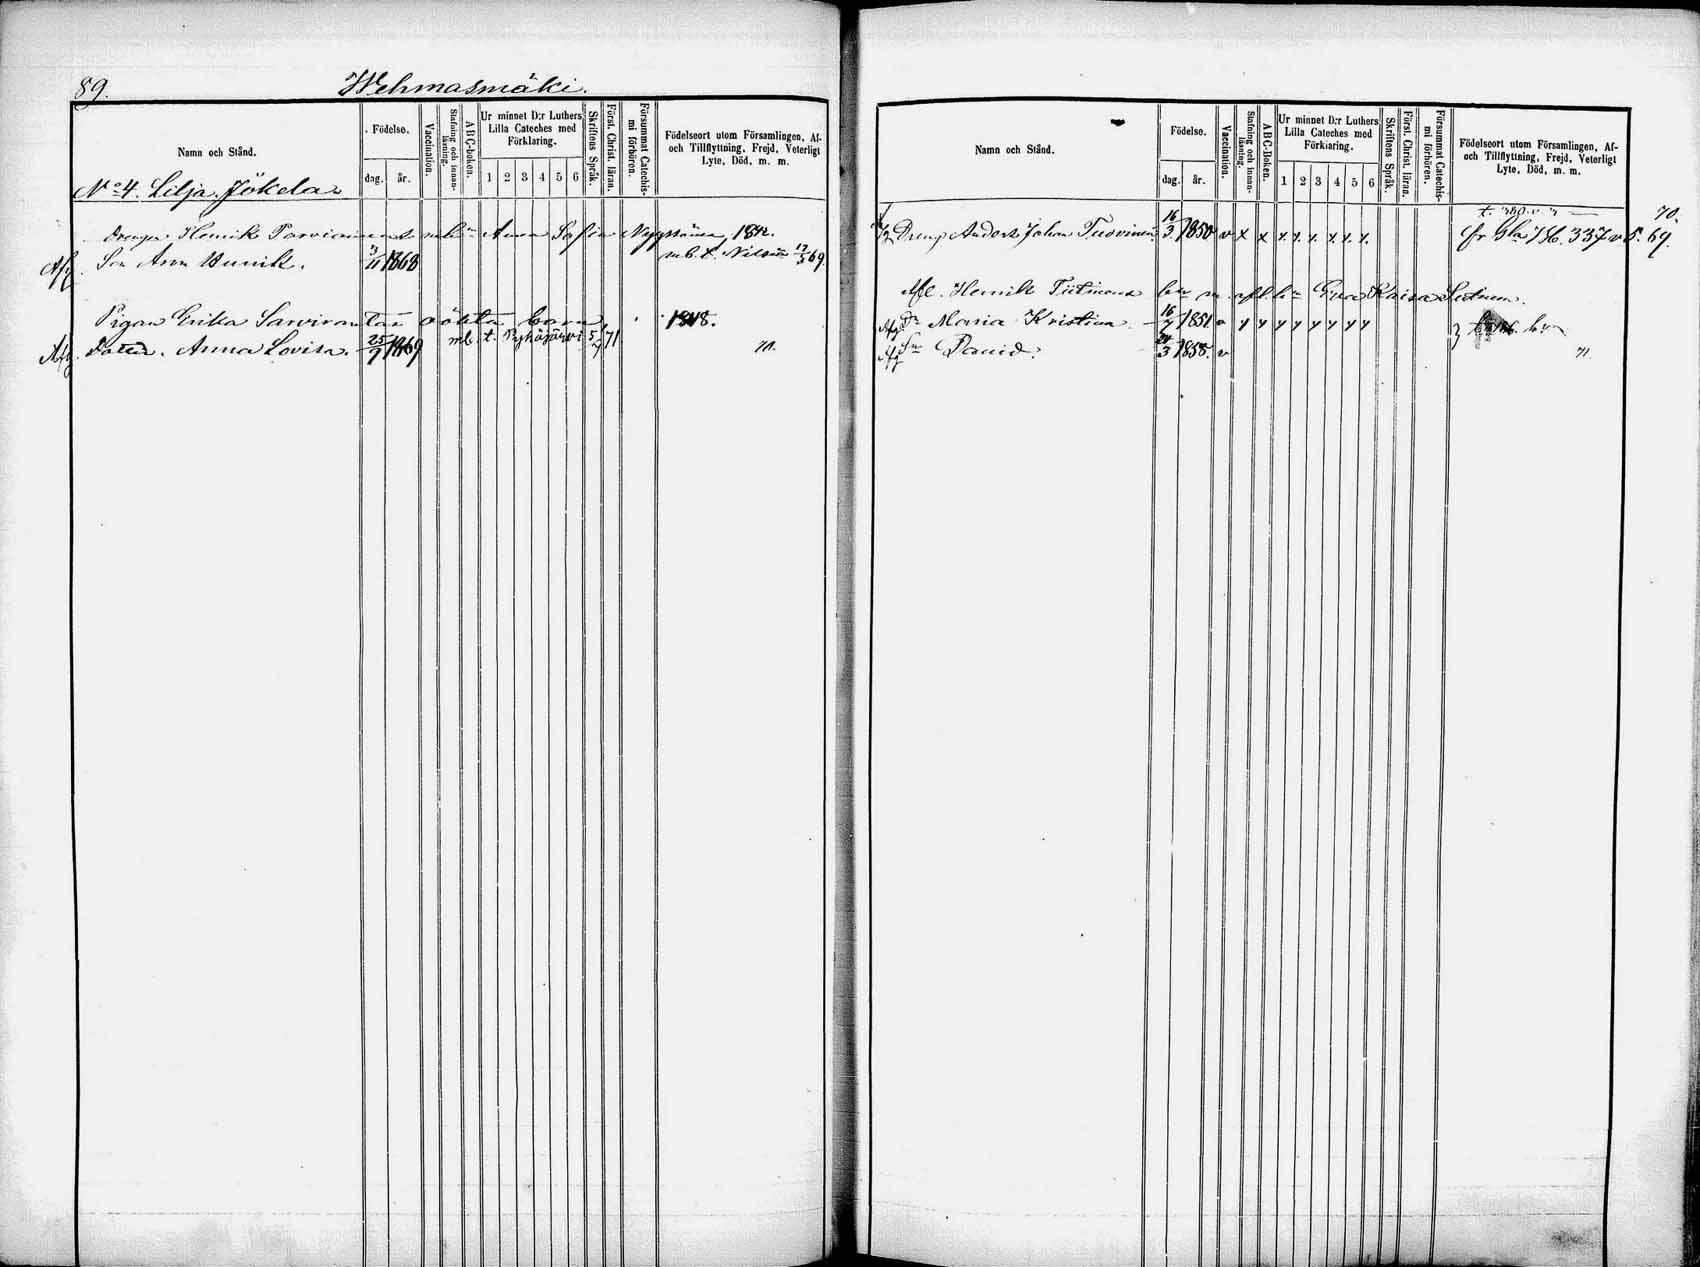 89. Wehmasmäki.
Namn och Stånd.
Födelse.
dag. år.
Vaccination.
Stafning och innanläsning.
ABC-boken.
Ur minnet D:r Luthers
Lilla Cateches med
Förklaring.
1 2 3 4 5 6
Skriftens Språk.
Först. Christ. läran.
Försummat Catechismi förhören.
Födelseort utom Församlingen, Af-
och Tillflyttning, Frejd, Veterligt
Lyte, Död, m. m.
No 4. Lilja, Jökela
Drengen Henrik Parviainens Anna Sofia 1842.
Afg Son Aron Hunrik. 3/11 1868 m.b.t. Nilsiä 17/3 69
Pigan Erika Sarvirantas oäkta barn 1848.
Afg Dotter. Anna Lovisa. 25/7 1869 mb. t. Pyhäjärvi 5/7 71
71.
Namn och Stånd.
Födelse.
dag. år.
Vaccination.
Stafning och innanläsning.
ABC-Boken.
Ur minnet D:r Luthers
Lilla Cateches med
Förklaring.
1 2 3 4 5 6
Skriftens Språk.
Först. Christ. läran.
Försummat Catechismi förhören.
Födelseort utom Församlingen, Af-
och Tillflyttning, Frejd, Veterligt
Lyte, Död, m. m.
t. 380 70.
Dreng Anders Johan Tuovinen 16/3 1850 v x x x x x x x x. fr 337 v 5. 69.
Afl. Henrik Tiitinens Eva Kaisa
Afg Dr Maria Kristina 16/7 1851 v y y y y y y y y
Afg Sn David. 24/3 1858. v 71.